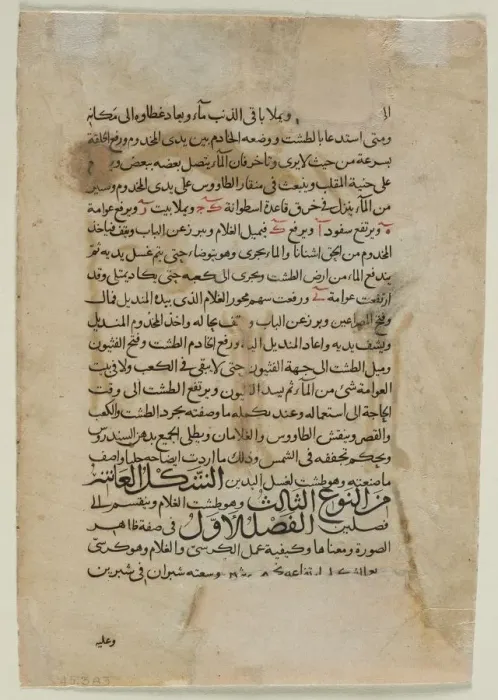 ويملا باقي الذنب ماء ويعاد غطاوه الى مكانه
ومتى استدعا بالطشت ووضعه الخادم بين يدى المخدوم ورفع الحلقة
بسرعة من حيث لا يرى وتاخر فان الماء يتصل بعضه ببعض
على حنية المقلب وينبعث في منقار الطاووس على يدى المخدوم ويسير
من الماء ينزل في خرق قاعدة اسطوانة ويملا بيت ويرفع عوامة
ويرتفع سفود ا ويرفع فيميل الغلام ويبرز عن الباب ويقف فياخذ
المخدوم من الحق اشنانا والماء يجرى وهو يتوضاء حتى يتم غسل يديه ثم
يندفع الماء من ارض الطشت ويجرى الى كعبه حتى يكاد يمتلى وقد
ارتفعت عوامة ورفعت سهم محور الغلام الذى بيده المنديل فمال
وفتح المصراعين وبرز عن الباب بحاله واخذ المخدوم المنديل
وينشف يديه واعاد المنديل ورفع الخادم الطشت وفتح الفثيون
وميل الطشت الى جهة الفثيون حتى لا يبقى في الكعب ولا في بيت
العوامة شئ من الماء ثم يسد الفثيون ويرتفع الطشت الى وقت
الحاجة الى استعماله وعند تكمله ما وصفته يجرد الطشت والكعب
والقصر وينقش الطاووس والغلامان ويطلى الجميع بدهن السندروس
ويحكم تجفيفه في الشمس وذلك ما اردت ايضاحه جليا واصف
ما صنعته وهو طشت لغسل اليدين الشكل العاشر
من النوع الثالث وهو طشت الغلام وينقسم الى
فصلين الفصل الاول في صفة ظاهر
الصورة ومعناها وكيفية عمل الكرسى والغلام وهو كرسى
وسعته شبران في شبرين
وعليه
45.383